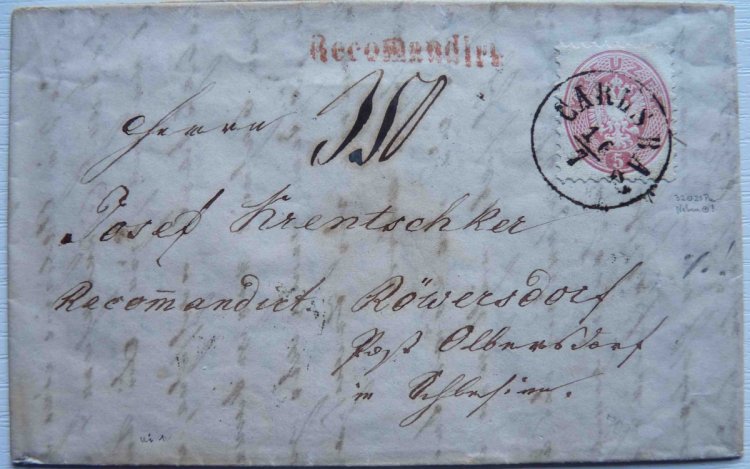 Recomandirt
Herrn
Josef Krentschker
Recomandirt. Röwersdorf
Post Olbersdorf
in Schlesien.
CARLSBA
16
5